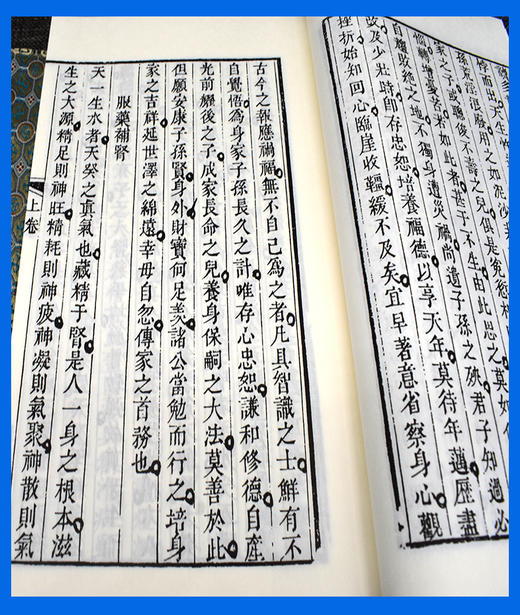 不壽之兒俱是冤愆
如此者甚于不生由此思之莫如
自履敗絕之地不獨身遭災禍尚遺子孫之殃君子知過必
改及少壯時卽存忠恕培養福德以享天年莫待年邁歷盡
挫折始知回心臨崖收韁緩不及矣宜早著意省察身心觀
古今之報應禍福無不自己為之者凡具智識之士鮮有不
自覺悟為身家子孫長久之計唯存心忠恕謙和修德自產
光前耀後之子成家長命之兒養身保嗣之大法莫善於此
但願安康子孫賢身外財寶何足羨諸公當勉而行之培身
家之吉祥延世澤之綿遠幸毋自忽傳家之首務也
服藥補腎
天一生水者天癸之眞氣也藏精于腎是人一身之根本滋
生之大源精足則神旺精耗則神疲神凝則氣聚神散則氣
上卷